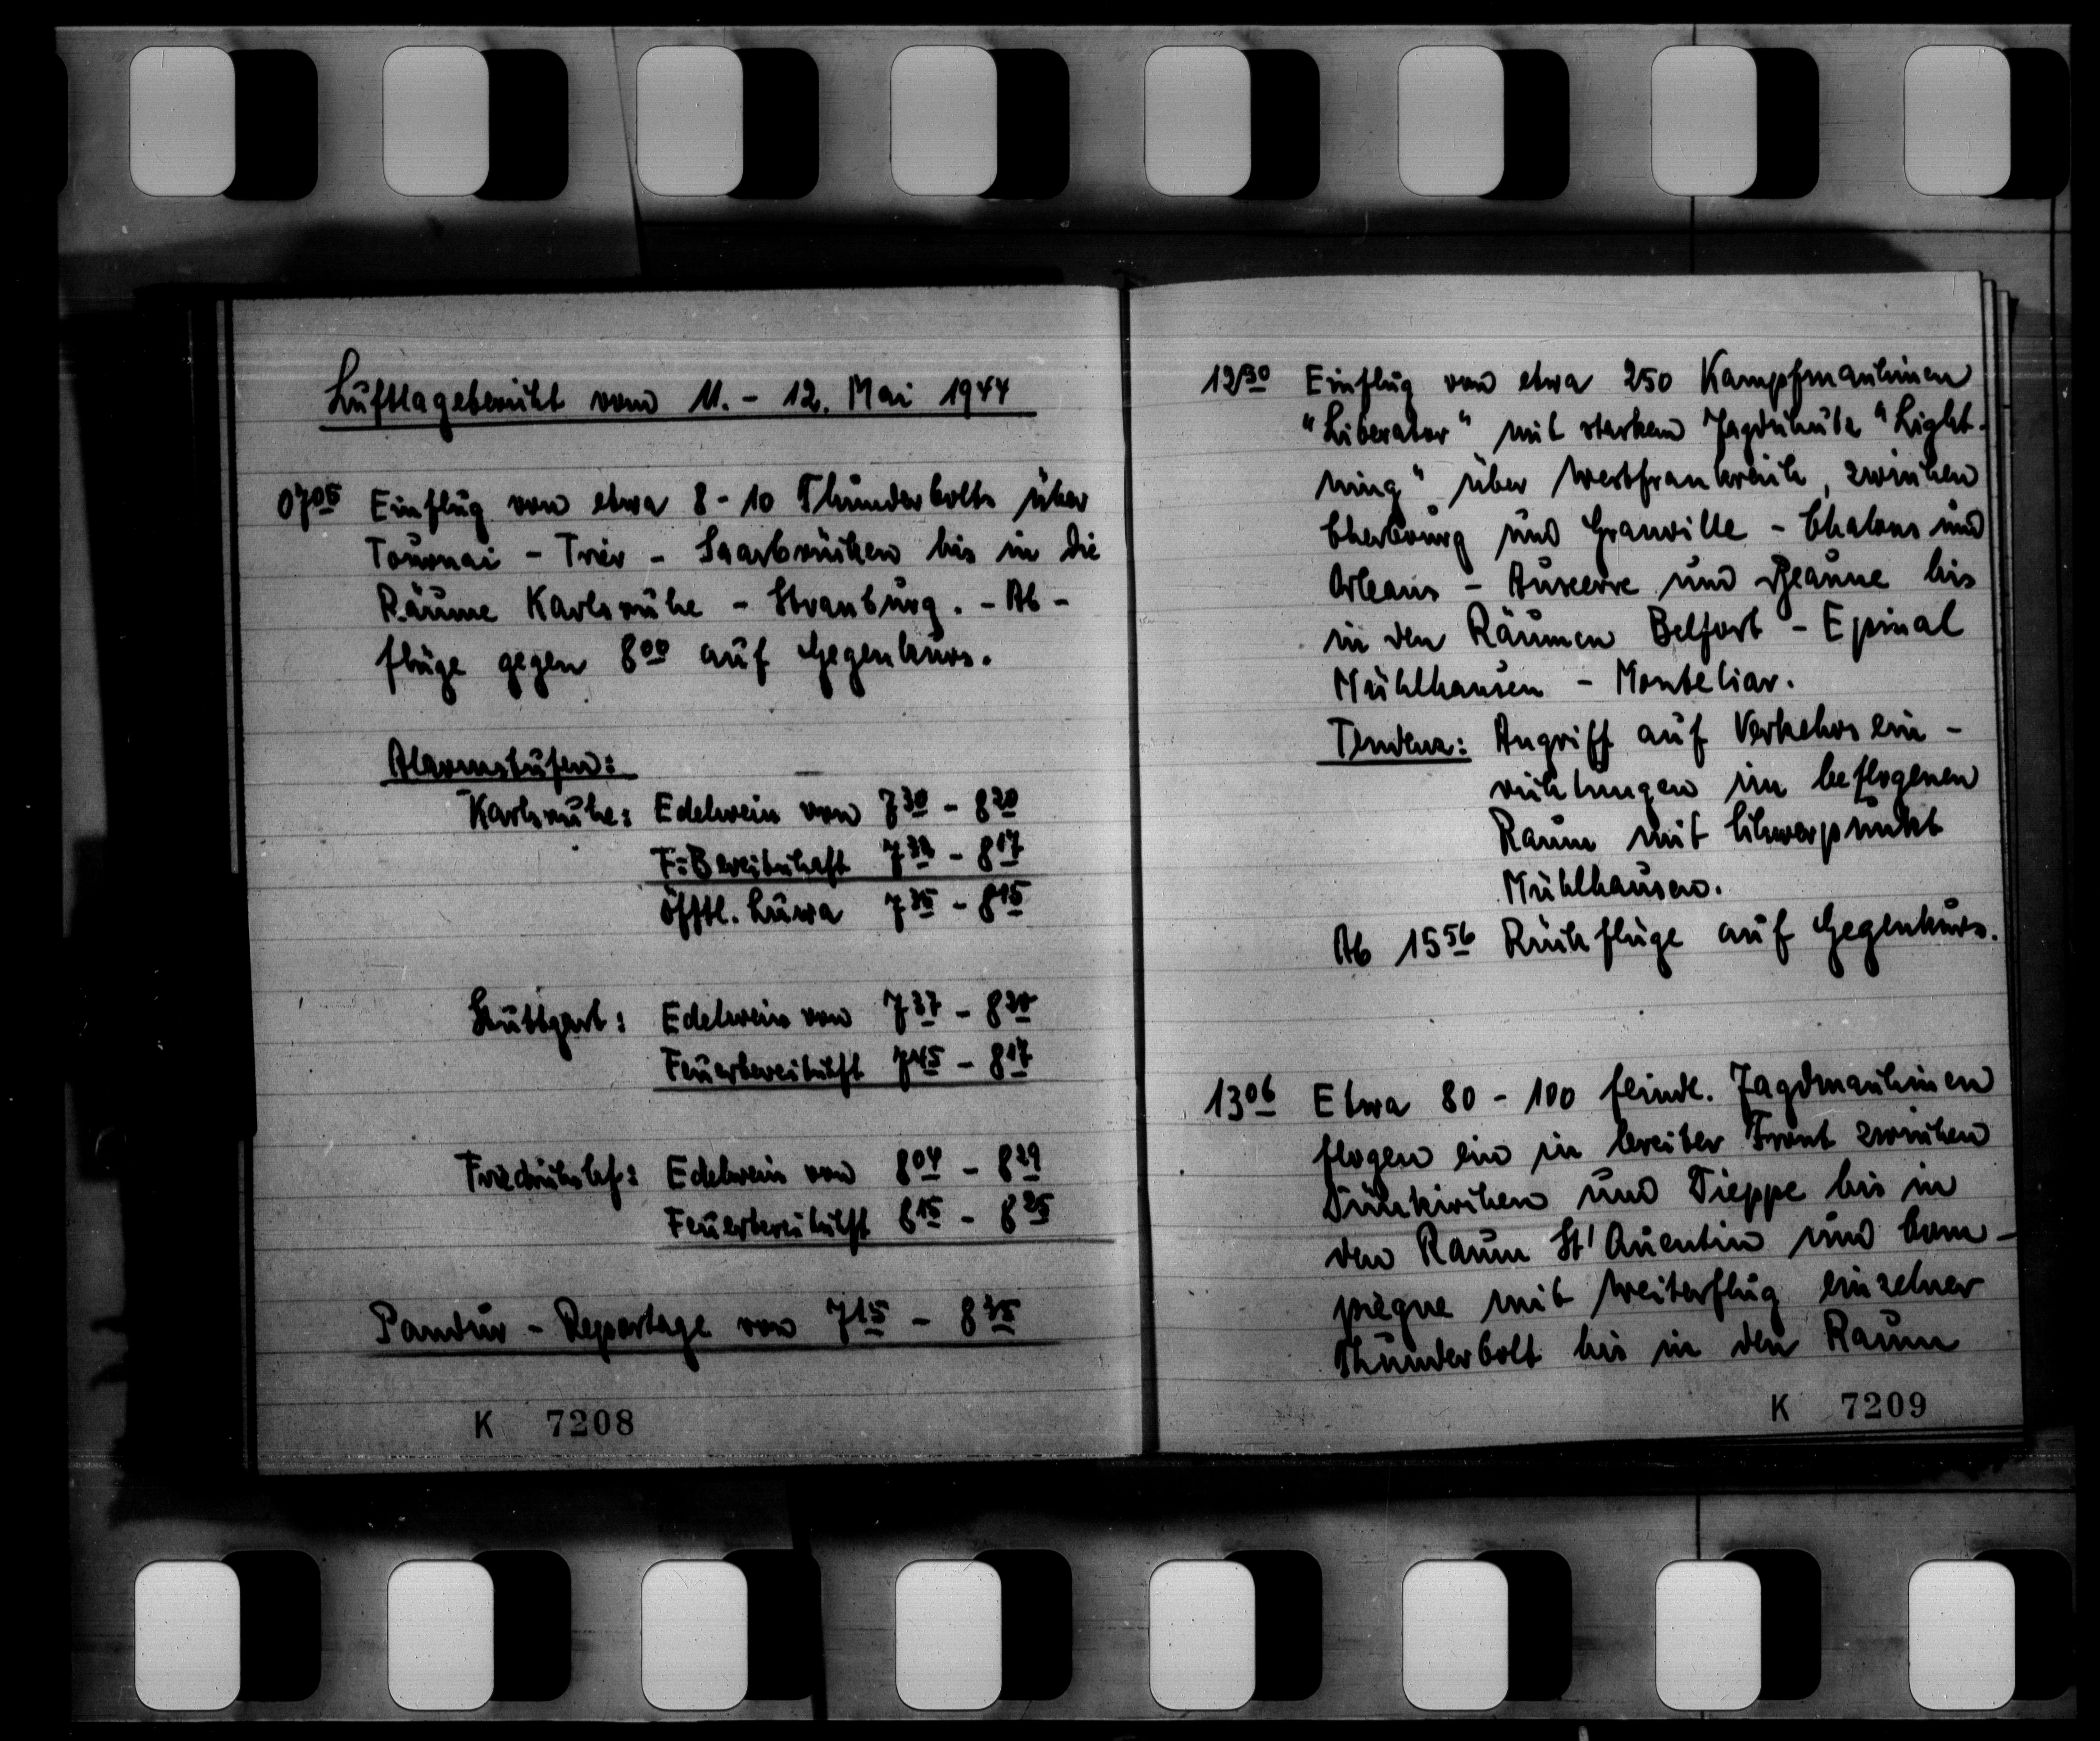 Luftlagebericht vom 11. - 12. Mai 1944
07⁰⁵ Einflug von etwa 8 - 10 Thunderbolts über
Tournai - Trier - Saarbrücken bis in die
Räume Karlsruhe - Strassburg. - Ab -
flüge gegen 8⁰⁰ auf Gegenkurs.
Alarmstufen:
Karlsruhe: Edelweiss von 7³⁰ - 8²⁰
F-Bereitschaft 7³² - 8¹⁷
öfftl. Luwa 7³⁵ - 8¹⁵
Stuttgart: Edelweiss von 7³⁷ - 8²⁰
Feuerbereitschft 7⁴⁵ - 8¹⁷
Friedrichshf: Edelweiss von 8⁰⁴ - 8²⁹
Feuerbereitschft 8¹⁵ - 8²⁵
Pandur - Reportage von 7¹⁵ - 8³⁵
K 7208
12³⁰ Einflug von etwa 250 Kampfmaschinen
"Liberator" mit starkem Jagdschutz "Light-
ning" über Westfrankreich, zwischen
Cherbourg und Granville - Chalons und
Orleans - Auxerre und Beaune bis
in den Räumen Belfort - Epinal
Mühlhausen - Monteliar.
Tendenz: Angriff auf Verkehrsein -
richtungen im beflogenen
Raum mit Schwerpunkt
Mühlhausen.
Ab 15⁵⁶ Rückflüge auf Gegenkurs.
13⁰⁶ Etwa 80 - 100 feindl. Jagdmaschinen
flogen ein in breiter Front zwischen
Dünkirchen und Dieppe bis in
den Raum St' Quentin und Com -
piegne mit Weiterflug einzelner
Thunderbolt bis in den Raum
K 7209